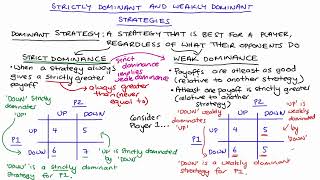 STRICTLY DOMINANT AND WEAKLY DOMINANT
STRATEGIES
DOMINANT STRATEGY: A STRATEGY THAT IS BEST FOR A PLAYER,
REGARDLESS OF WHAT THEIR OPPONENTS DO
STRICT DOMINANCE
• When a strategy always
gives a strictly greater
payoff
always greater than
(never equal to)
Strict dominance implies weak dominance
WEAK DOMINANCE
• Payoffs are atleast as good
(relative to another strategy)
• Atleast one payoff is strictly greater
(relative to another strategy)
'DOWN' strictly
dominates
'UP'
P2
UP DOWN
P1
UP 4 5
DOWN 6 7
'UP' is strictly dominated
by 'DOWN'
'DOWN' is a strictly dominant
strategy for P1.
Consider
Player 1...
'DOWN' weakly
dominates
'UP'
P2
UP DOWN
P1
UP 4 5
DOWN 6 5
'UP' is
weakly
dominated
by
'DOWN'
'DOWN' is a weakly dominant
strategy for P1.